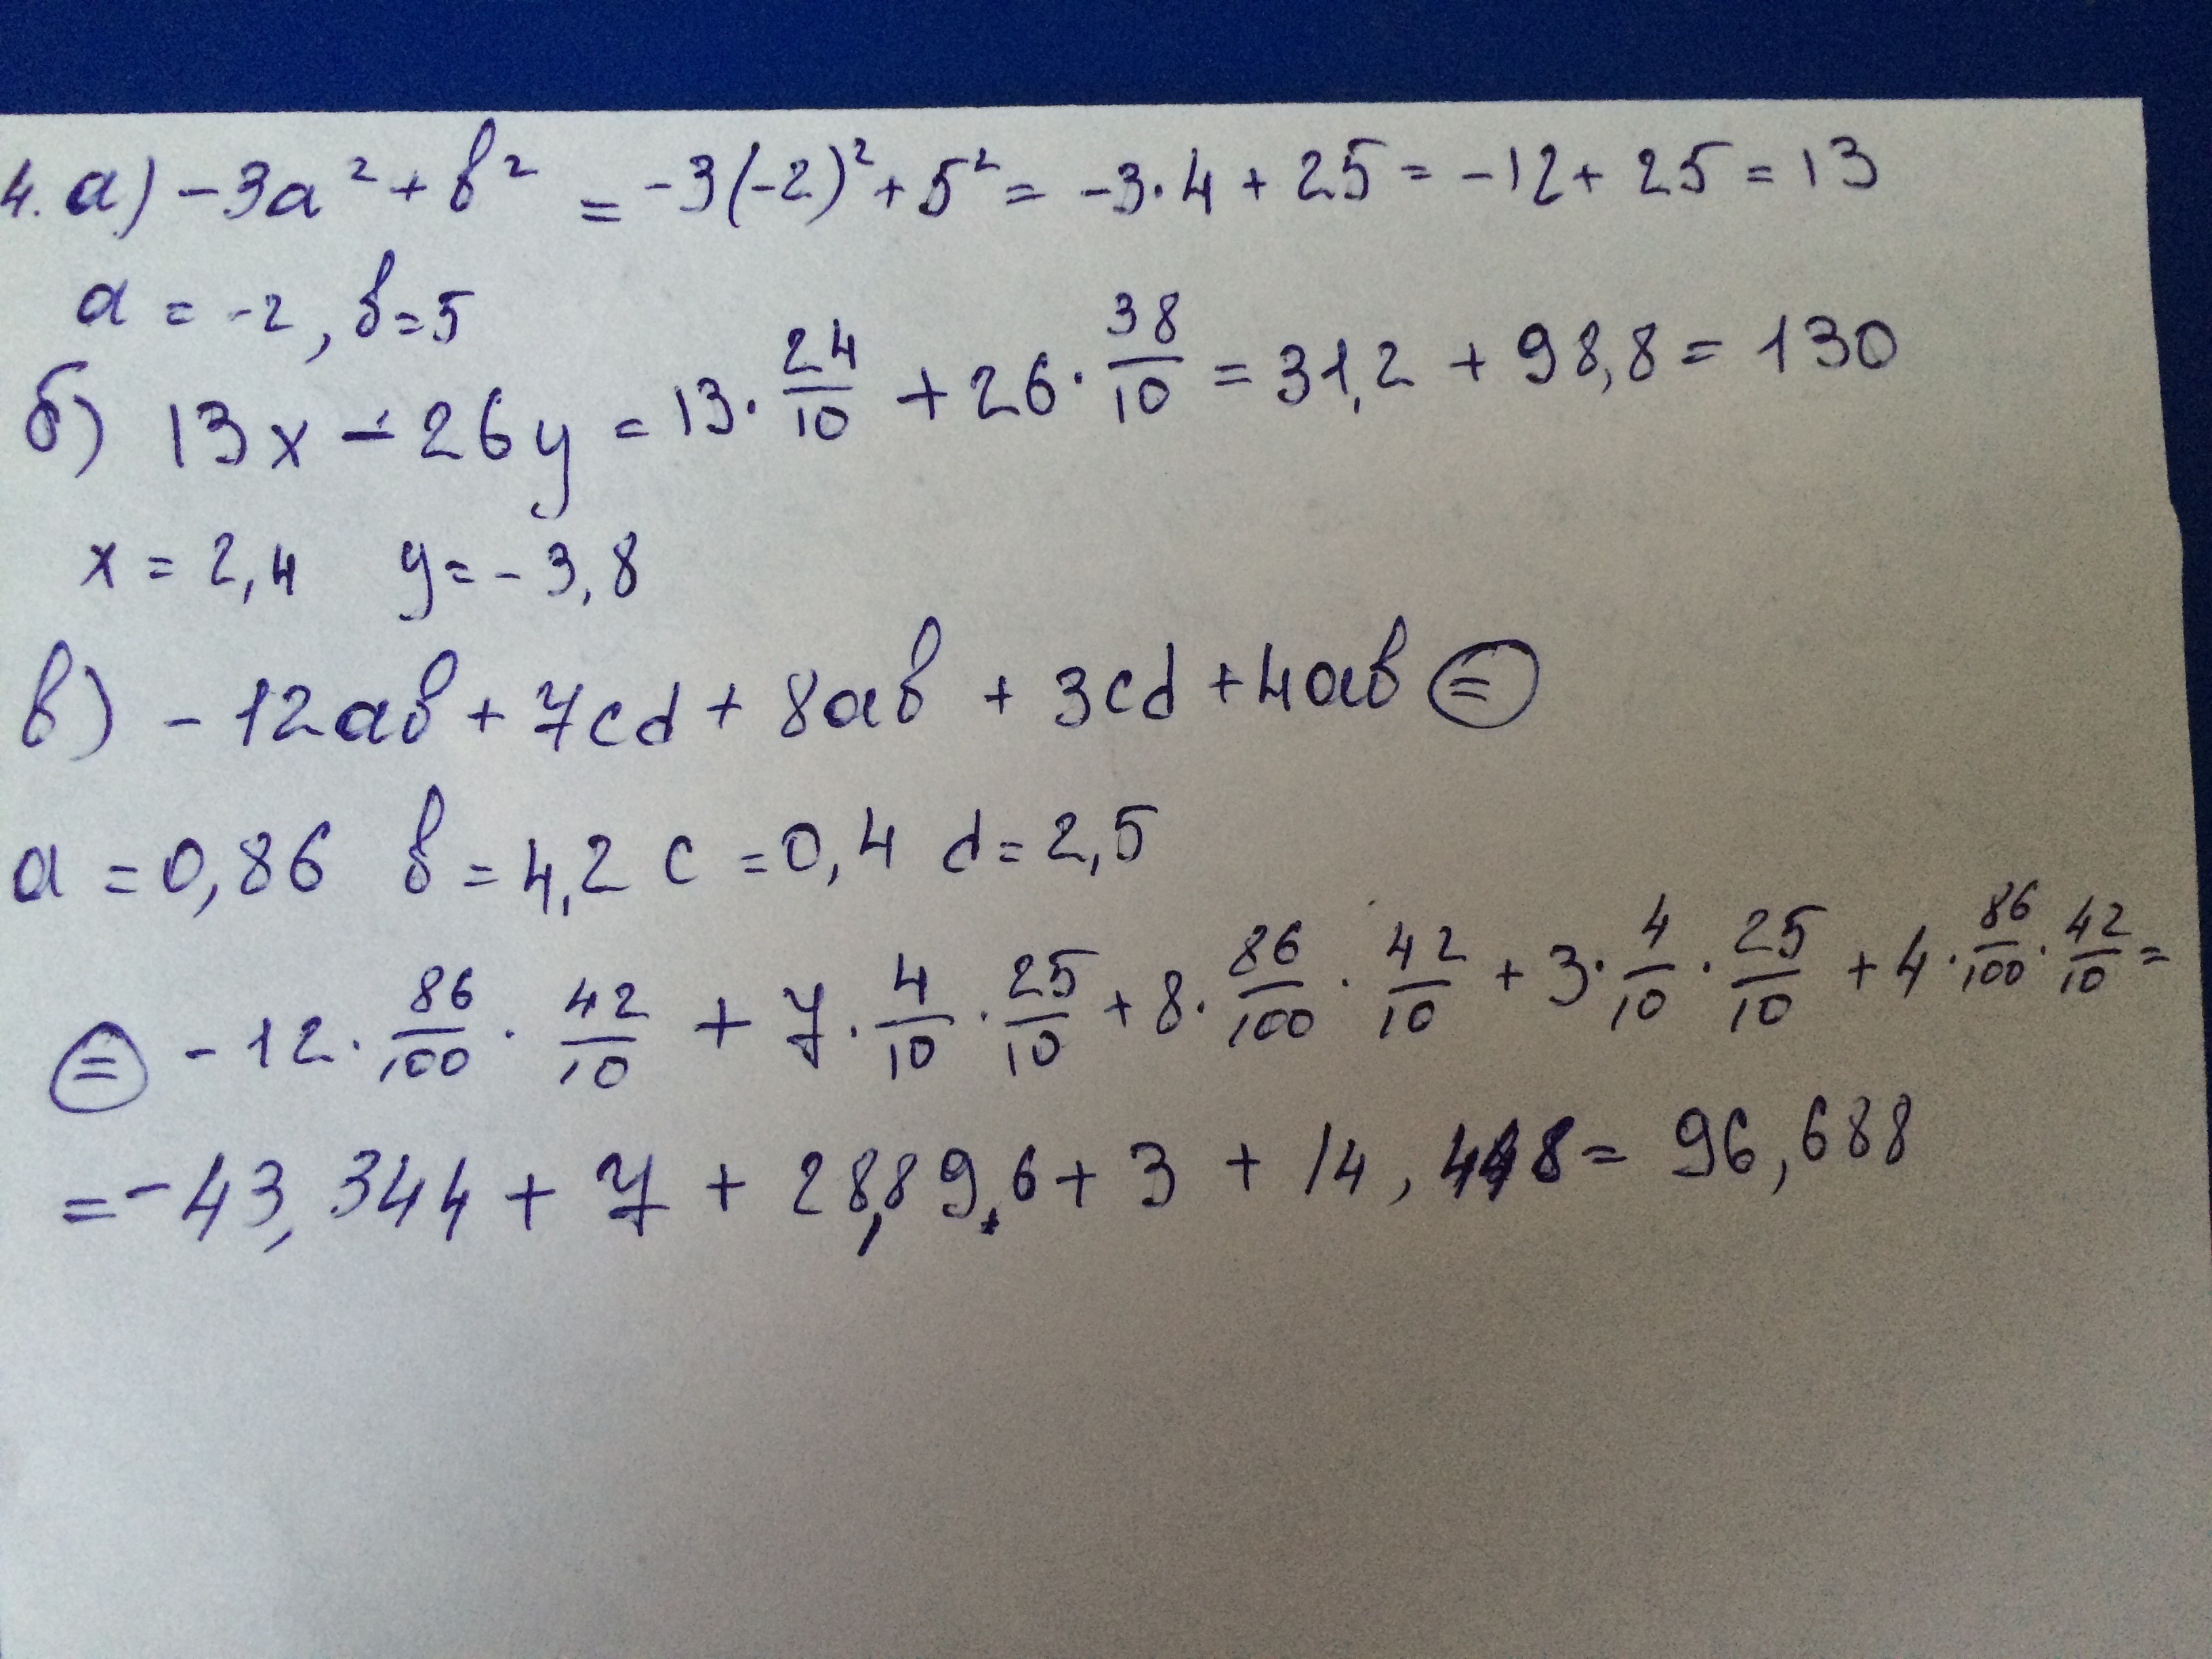 4. а) -3a² + b² = -3(-2)² + 5² = -3·4 + 25 = -12 + 25 = 13
a = -2, b = 5
б) 13x - 26y = 13 · 24/10 + 26 · 38/10 = 31,2 + 98,8 = 130
x = 2,4 y = -3,8
в) -12ab + 7cd + 8ab + 3cd + 4ab =
a = 0,86 b = 4,2 c = 0,4 d = 2,5
= -12 · 86/100 · 42/10 + 7 · 4/10 · 25/10 + 8 · 86/100 · 42/10 + 3 · 4/10 · 25/10 + 4 · 86/100 · 42/10 =
= -43,344 + 7 + 28,896 + 3 + 14,448 = 96,688